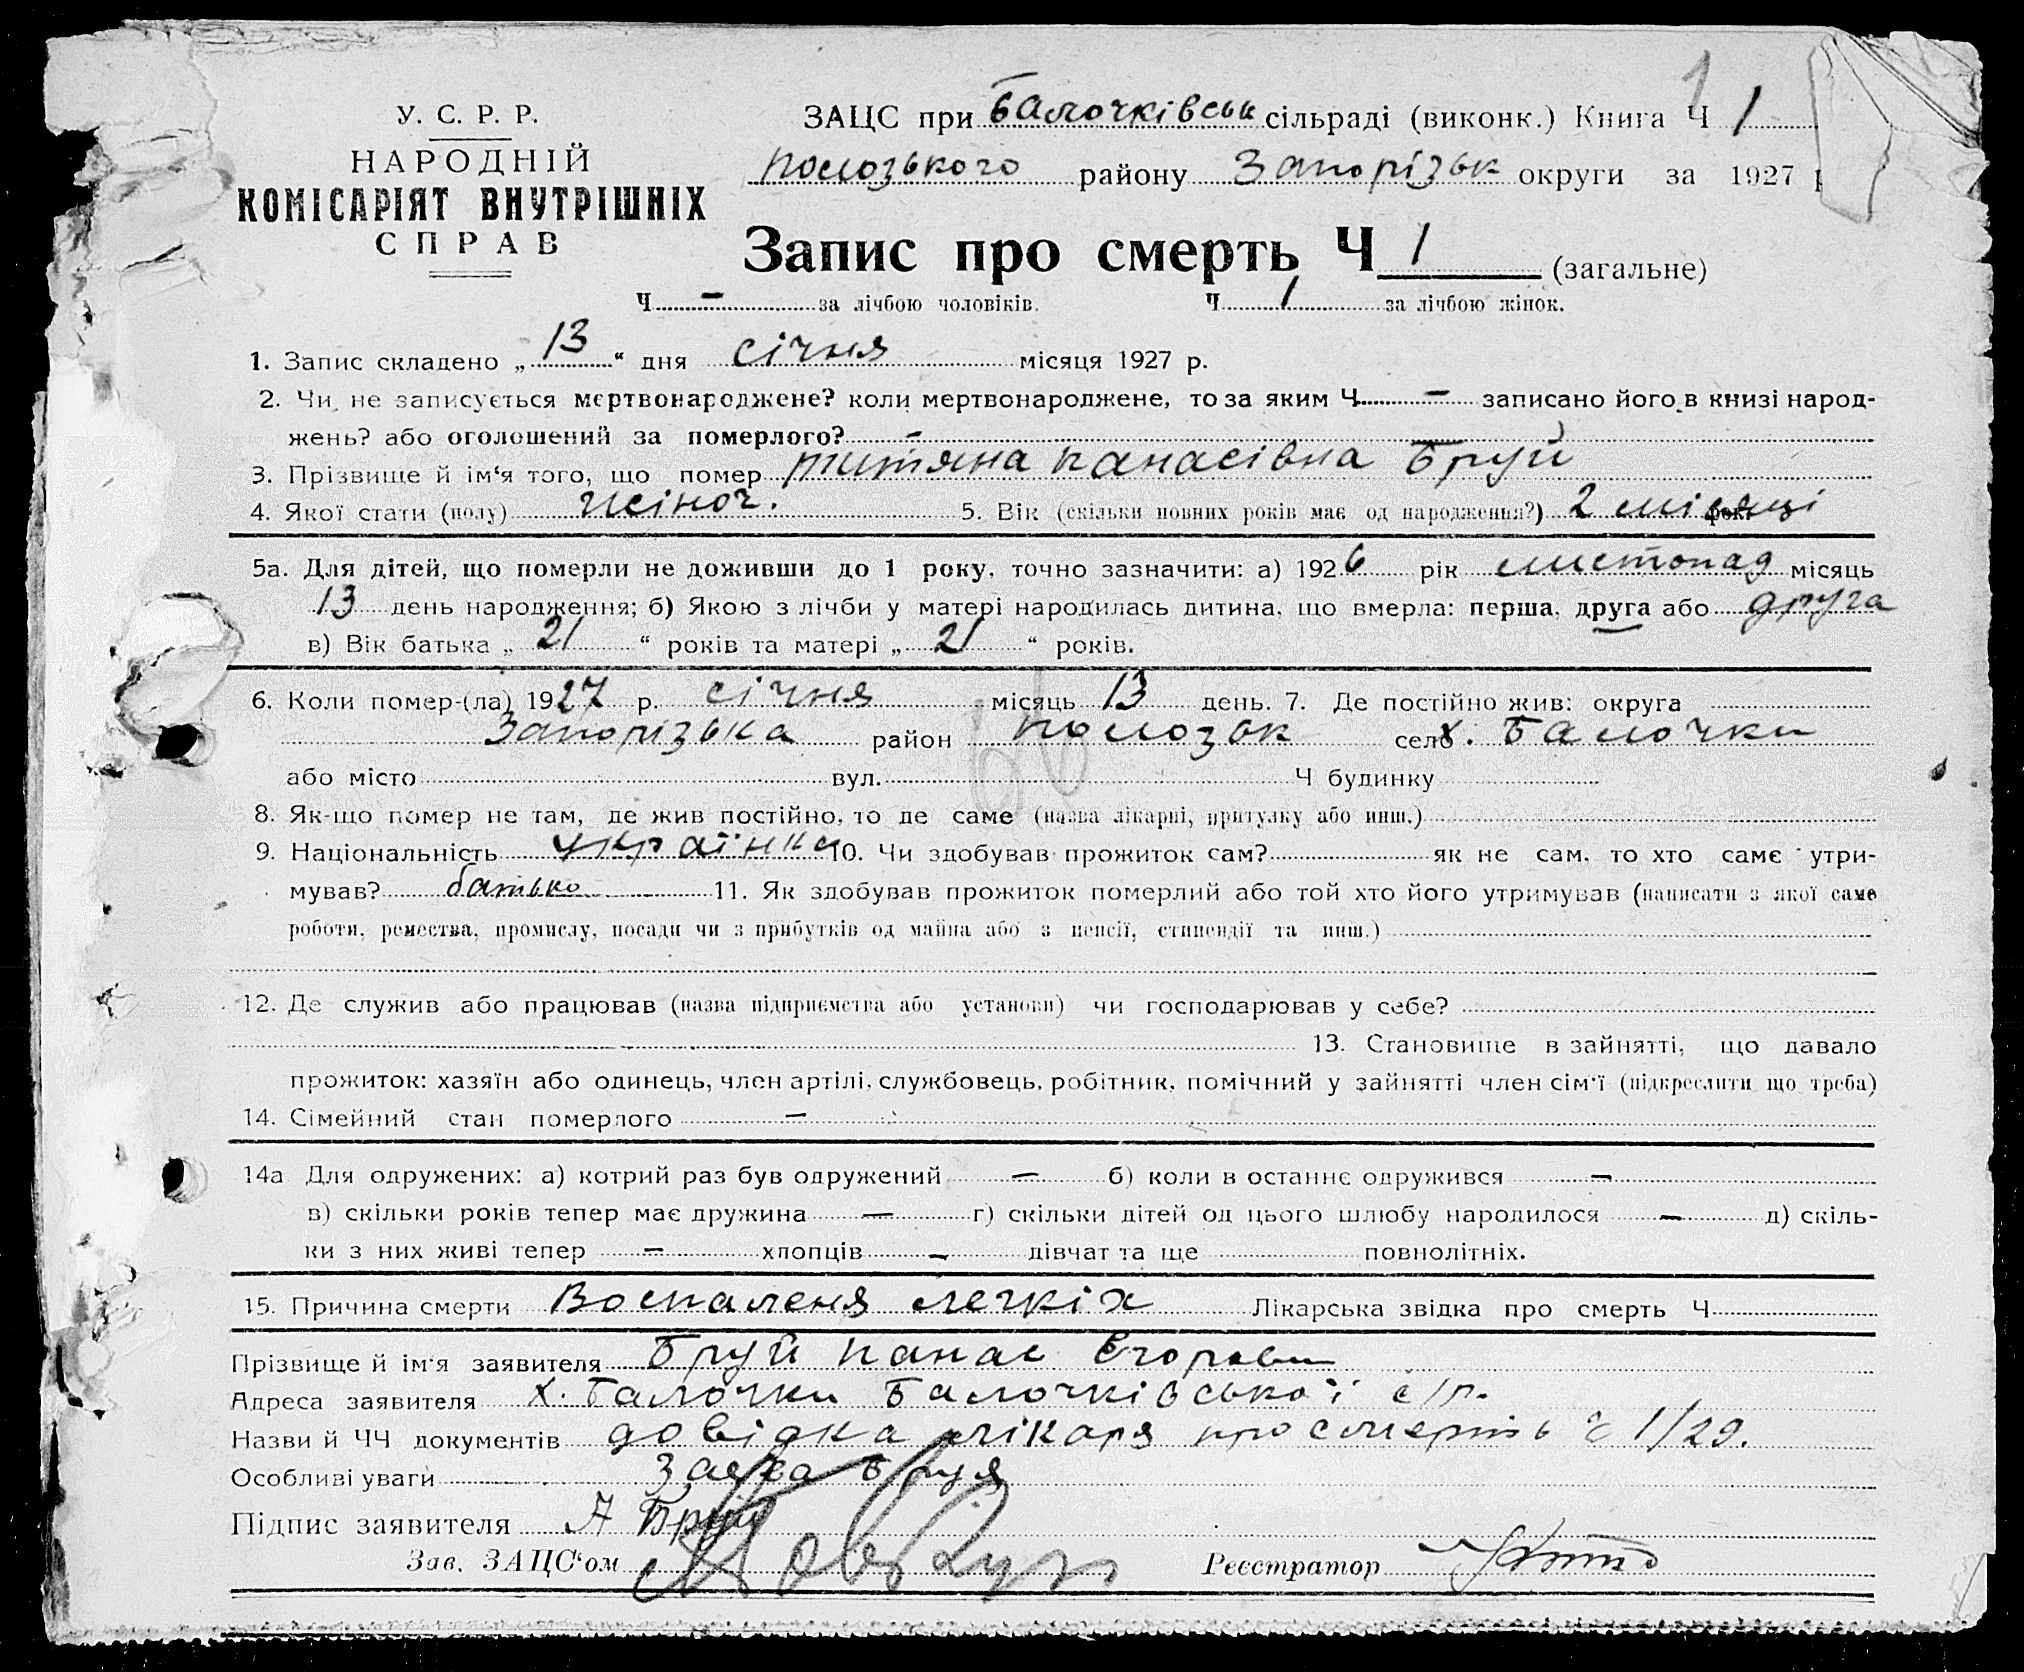 У. С. Р. Р.
НАРОДНІЙ
КОМІСАРІЯТ ВНУТРІШНІХ
СПРАВ
1
ЗАЦС при Балочківськ сільраді (виконк.) Книга Ч 1
Полозького району Запорізьк округи за 1927 р
Запис про смерть Ч 1 (загальне)
Ч - за лічбою чоловіків. Ч 1 за лічбою жінок.
1. Запис складено „ 13 “ дня січня місяця 1927 р.
2. Чи не записується мертвонароджене? коли мертвонароджене, то за яким Ч - записано його в книзі народ-
жень? або оголошений за померлого? -
3. Прізвище й ім‘я того, що помер Титяна Панасівна Бруй
4. Якої стати (полу) жіноч. 5. Вік (скільки повних років має од народження?) 2 місяці
5а. Для дітей, що померли не доживши до 1 року, точно зазначити: а) 1926 рік листопад місяць
13 день народження; б) Якою з лічби у матері народилась дитина, що вмерла: перша, друга або друга
в) Вік батька „ 21 “ років та матері „ 21 “ років.
6. Коли помер-(ла) 1927 р. січня місяць 13 день. 7. Де постійно жив: округа
Запорізька район Полозьк село х. Балочки
або місто вул. Ч будинку
8. Як-що помер не там, де жив постійно, то де саме (назва лікарні, притулку або инш.)
9. Національність українка 10. Чи здобував прожиток сам? як не сам, то хто саме утри-
мував? батько 11. Як здобував прожиток померлий або той хто його утримував (написати з якої саме
роботи, ремества, промислу, посади чи з прибутків од майна або з пенсії, стипендії та инш.)
12. Де служив або працював (назва підприємства або установи) чи господарював у себе?
13. Становище в зайнятті, що давало
прожиток: хазяїн або одинець, член артілі, службовець, робітник, помічний у зайнятті член сім‘ї (підкреслити що треба)
14. Сімейний стан померлого -
14а Для одружених: а) котрий раз був одружений - б) коли в останнє одружився -
в) скільки років тепер має дружина - г) скільки дітей од цього шлюбу народилося - д) скіль-
ки з них живі тепер - хлопців - дівчат та ще повнолітніх.
15. Причина смерти Воспаленя легкіх Лікарська звідка про смерть Ч
Прізвище й ім‘я заявителя Бруй Панас Єгорови
Адреса заявителя х. Балочки Балочківської с/р.
Назви й ЧЧ документів довідка лікаря про смерть 1/29.
Особливі уваги Заява Бруя
Підпис заявителя А Бруй
Зав. ЗАЦС‘ом Реєстратор